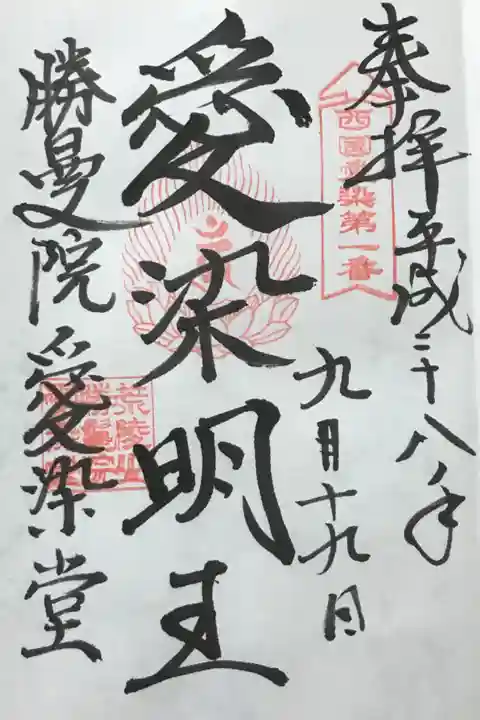 奉拝平成二十八年
九月十九日
西國愛染第一番
愛染明王
勝曼院愛染堂